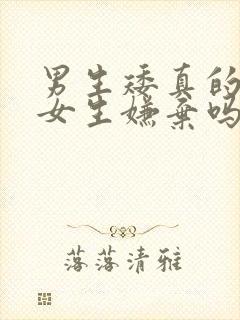 男生矮真的
女生嫌弃吗
落落清雅